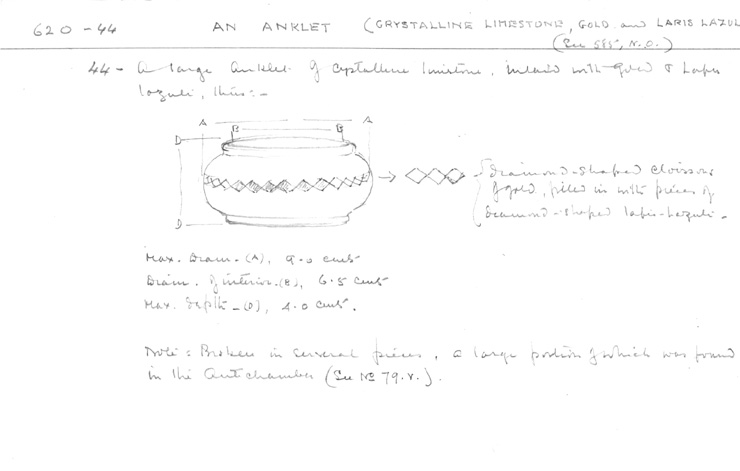 620-44 AN ANKLET (CRYSTALLINE LIMESTONE, GOLD, and LAPIS LAZUL
(See 585, N.O.)
44- A large anklet of crystalline limestone, inlaid with gold & lapis
lazuli, thus:-
A A
B B
D
D
diamond-shaped cloisons
of gold, filled in with pieces of
diamond-shaped lapis-lazuli.
Max. Diam. (A), 9.0 cents
Diam. of interior (B), 6.5 cents
Max. depth - (D), 4.0 cents.
Note: Broken in several pieces, a large portion of which was found
in the Antechamber (See No 79.v.).